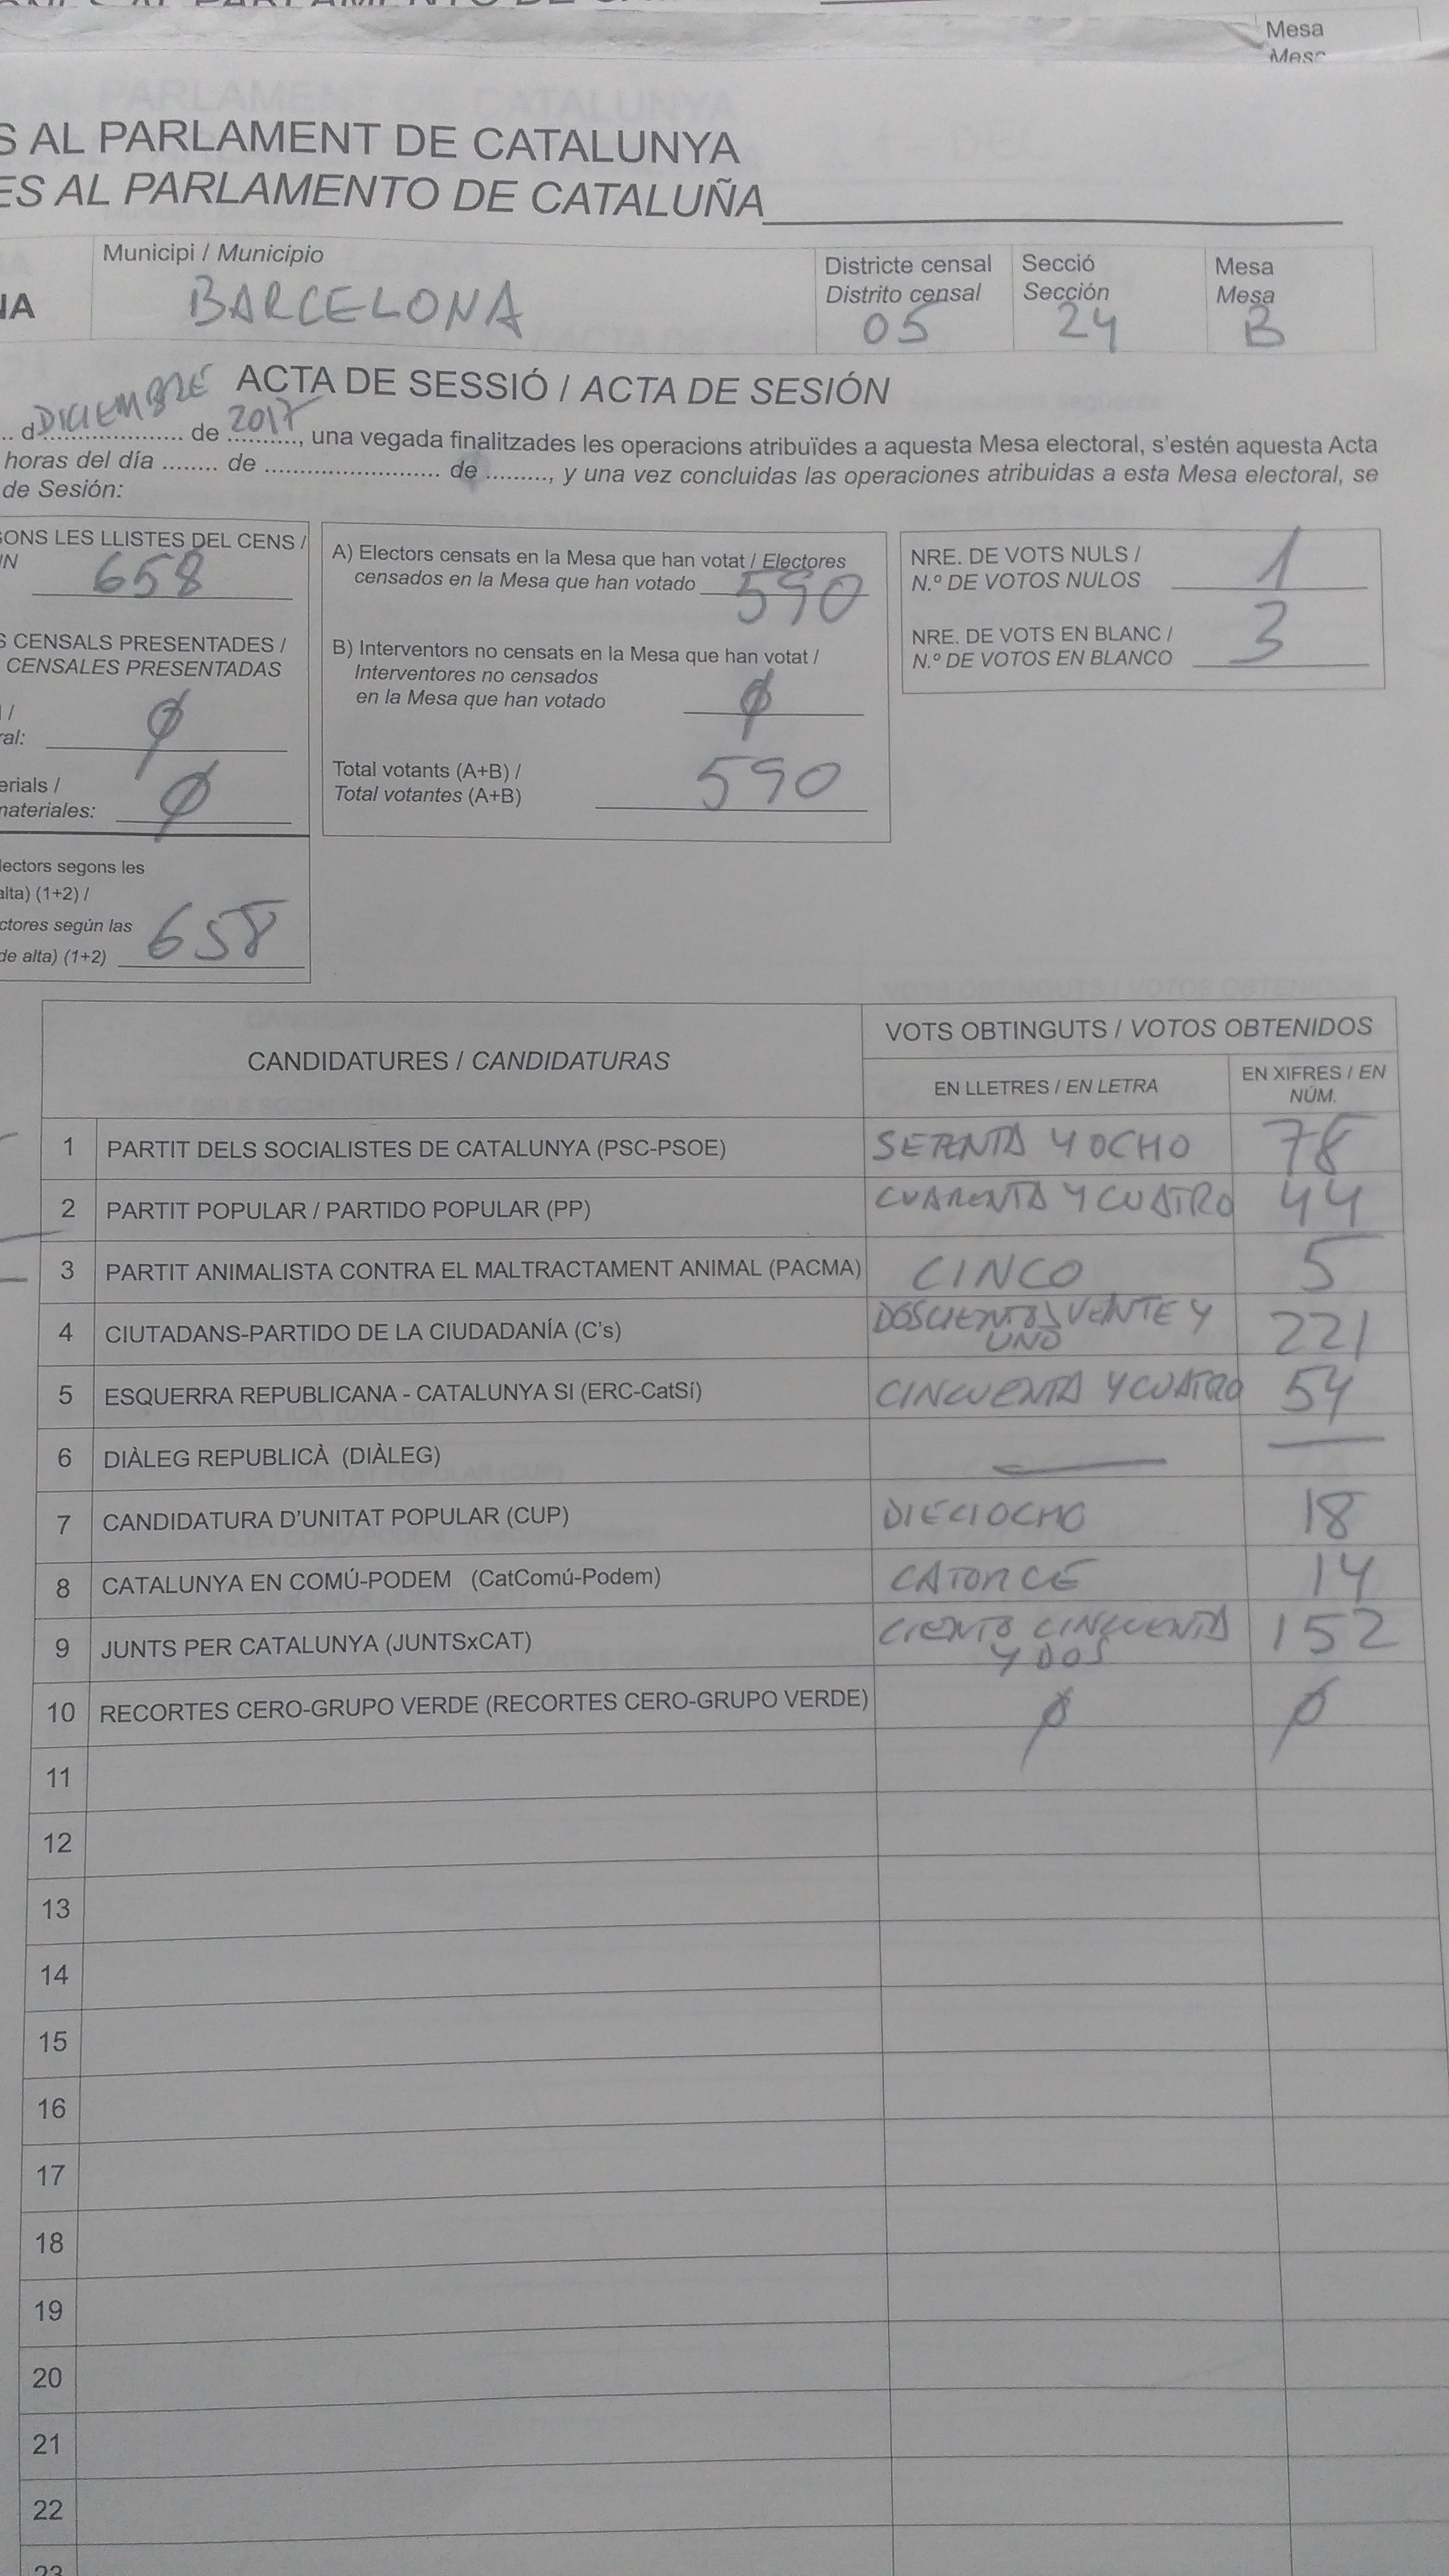 Mesa
S AL PARLAMENT DE CATALUNYA
ES AL PARLAMENTO DE CATALUÑA
NA
Municipi / Municipio
BARCELONA
Districte censal
Distrito censal
05
Secció
Sección
24
Mesa
Mesa
B
ACTA DE SESSIÓ / ACTA DE SESIÓN
.. d DICIEMBRE de 2017, una vegada finalitzades les operacions atribuïdes a aquesta Mesa electoral, s'estén aquesta Acta
horas del día ........ de ........................ de ........., y una vez concluidas las operaciones atribuidas a esta Mesa electoral, se
de Sesión:
GONS LES LLISTES DEL CENS /
658
S CENSALS PRESENTADES /
CENSALES PRESENTADAS
ral: ø
erials /
materiales: ø
lectors segons les
alta) (1+2) /
ctores según las
de alta) (1+2) 658
A) Electors censats en la Mesa que han votat / Electores
censados en la Mesa que han votado 590
B) Interventors no censats en la Mesa que han votat /
Interventores no censados
en la Mesa que han votado ø
Total votants (A+B) /
Total votantes (A+B) 590
NRE. DE VOTS NULS /
N.º DE VOTOS NULOS 1
NRE. DE VOTS EN BLANC /
N.º DE VOTOS EN BLANCO 3
CANDIDATURES / CANDIDATURAS
VOTS OBTINGUTS / VOTOS OBTENIDOS
EN LLETRES / EN LETRA
EN XIFRES / EN
NÚM.
1 PARTIT DELS SOCIALISTES DE CATALUNYA (PSC-PSOE) SETENTA Y OCHO 78
2 PARTIT POPULAR / PARTIDO POPULAR (PP) CUARENTA Y CUATRO 44
3 PARTIT ANIMALISTA CONTRA EL MALTRACTAMENT ANIMAL (PACMA) CINCO 5
4 CIUTADANS-PARTIDO DE LA CIUDADANÍA (C's) DOSCIENTOS VEINTE Y UNO 221
5 ESQUERRA REPUBLICANA - CATALUNYA SI (ERC-CatSí) CINCUENTA Y CUATRO 54
6 DIÀLEG REPUBLICÀ (DIÀLEG) — —
7 CANDIDATURA D'UNITAT POPULAR (CUP) DIECIOCHO 18
8 CATALUNYA EN COMÚ-PODEM (CatComú-Podem) CATORCE 14
9 JUNTS PER CATALUNYA (JUNTSxCAT) CIENTO CINCUENTA Y DOS 152
10 RECORTES CERO-GRUPO VERDE (RECORTES CERO-GRUPO VERDE) ø ø
11
12
13
14
15
16
17
18
19
20
21
22
23